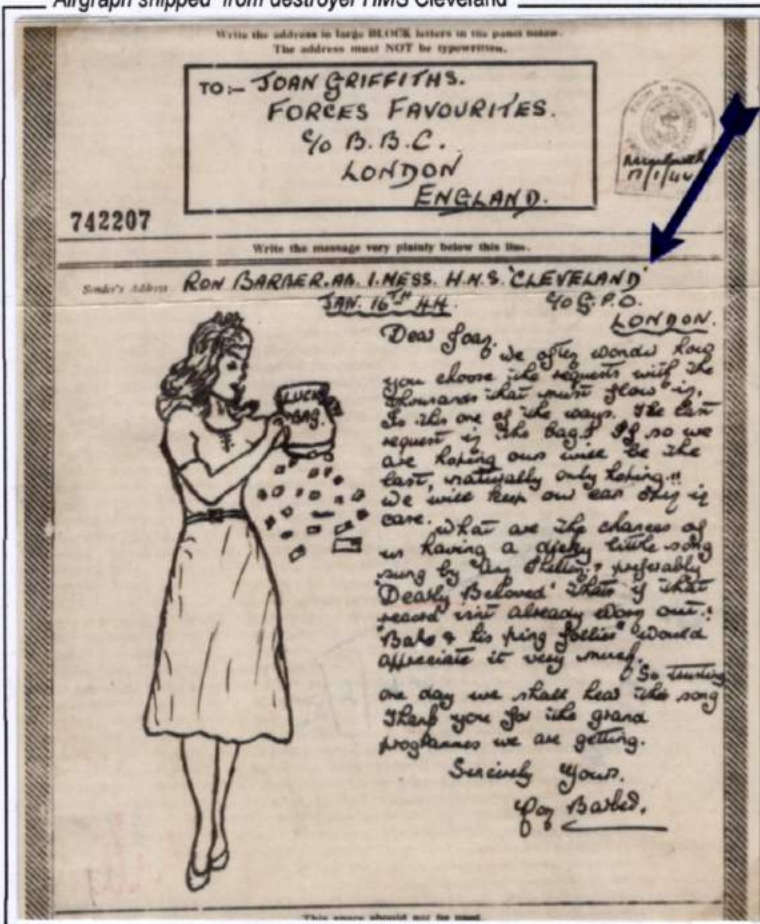 Airgraph shipped from destroyer HMS Cleveland
Write the address in large BLOCK letters in the panel below.
The address must NOT be typewritten.
TO:- JOAN GRIFFITHS.
FORCES FAVOURITES.
c/o B.B.C.
LONDON
ENGLAND.
742207
Write the message very plainly below this line.
Sender's Address RON BARBER. AB. 1. MESS. H.M.S. 'CLEVELAND'
JAN. 16TH 44. c/o G.P.O.
LONDON.
Dear Joan,
We often wonder how
you choose the requests with the
thousands that must flow in.
Is this one of the ways. The last
request in the bag? If so we
are hoping ours will be the
last, naturally only hoping!!
We will keep our ear in
case.
What are the chances of
us having a little song
sung by preferably
'Dearly Beloved' thats if that
record isnt already worn out!
would
appreciate it very much.
So trusting
one day we shall hear the song
Thank you for the grand
programmes we are getting.
Sincerely Yours.
Ron Barber.
LUCKY
BAG.
This space should not be used.